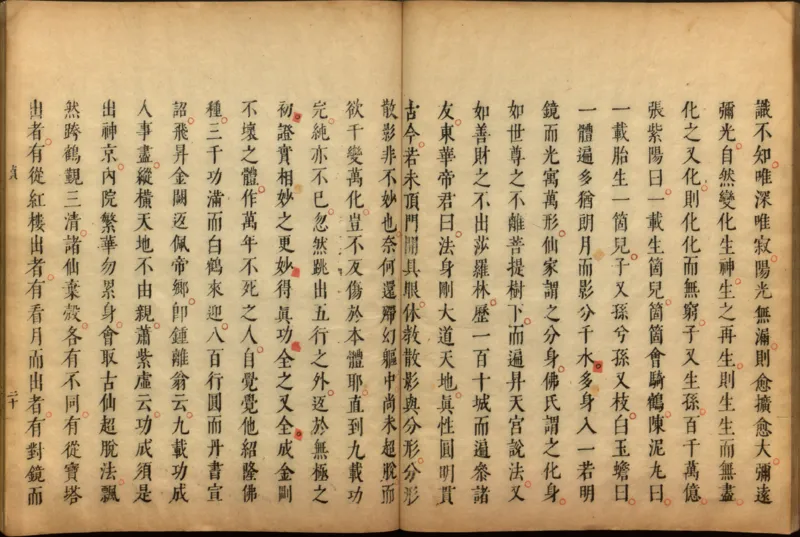 識不知唯深唯寂陽光無漏則愈擴愈大彌遠
彌光自然變化生神生之再生則生生而無盡
化之又化則化化而無窮子又生孫百千萬億
張紫陽曰一載生箇兒箇箇會騎鶴陳泥丸曰
一載胎生一箇兒子又孫兮孫又枝白玉蟾曰
一體遍多猶朗月而影分千水多身入一若明
鏡而光寓萬形仙家謂之分身佛氏謂之化身
如世尊之不離菩提樹下而遍昇天宮說法又
如善財之不出莎羅林歷一百十城而遍參諸
友東華帝君曰法身剛大道天地眞性圓明貫
古今若未頂門開具眼休教散影與分形分形
散影非不妙也奈何還歸幻軀中尚未超脫而
欲千變萬化豈不反傷於本體耶直到九載功
完純亦不已忽然跳出五行之外返於無極之
初證實相妙之更妙得眞功全之又全成金剛
不壞之體作萬年不死之人自覺覺他紹隆佛
種三千功滿而白鶴來迎八百行圓而丹書宣
詔飛昇金闕返佩帝鄉卽鍾離翁云九載功成
人事盡縱橫天地不由親蕭紫虛云功成須是
出神京內院繁華勿累身會取古仙超脫法飄
然跨鶴觀三清諸仙棄殼各有不同有從寶塔
出者有從紅樓出者有看月而出者有對鏡而
二十